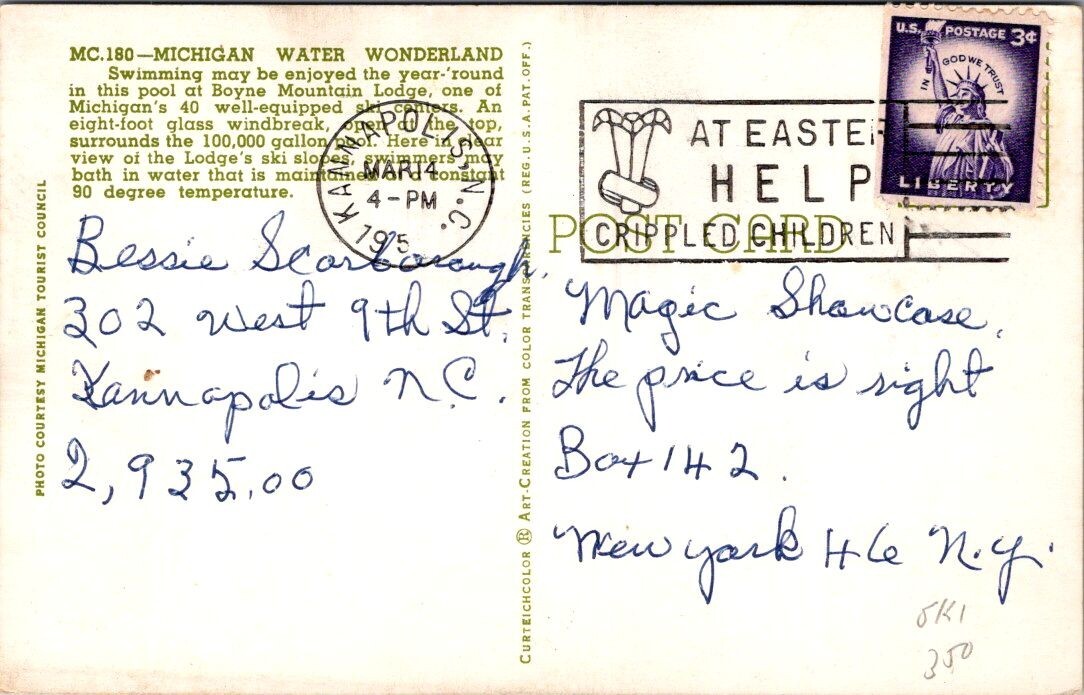 MC.180—MICHIGAN WATER WONDERLAND
Swimming may be enjoyed the year-'round
in this pool at Boyne Mountain Lodge, one of
Michigan's 40 well-equipped ski centers. An
eight-foot glass windbreak, open at the top,
surrounds the 100,000 gallon pool. Here in clear
view of the Lodge's ski slopes, swimmers may
bath in water that is maintained at constant
90 degree temperature.
PHOTO COURTESY MICHIGAN TOURIST COUNCIL
KANNAPOLIS, N.C.
MAR 14
4 - PM
195
Bessie Scarborough.
302 West 9th St.
Kannapolis N.C.
2,935.00
CURTEICHCOLOR ® ART-CREATION FROM COLOR TRANSPARENCIES (REG. U.S.A. PAT. OFF.)
U.S. POSTAGE 3¢
IN GOD WE TRUST
LIBERTY
AT EASTER
HELP
CRIPPLED CHILDREN
POST CARD
Magic Showcase.
The price is right
Box 142.
New york 46 N.Y.
SKI
350